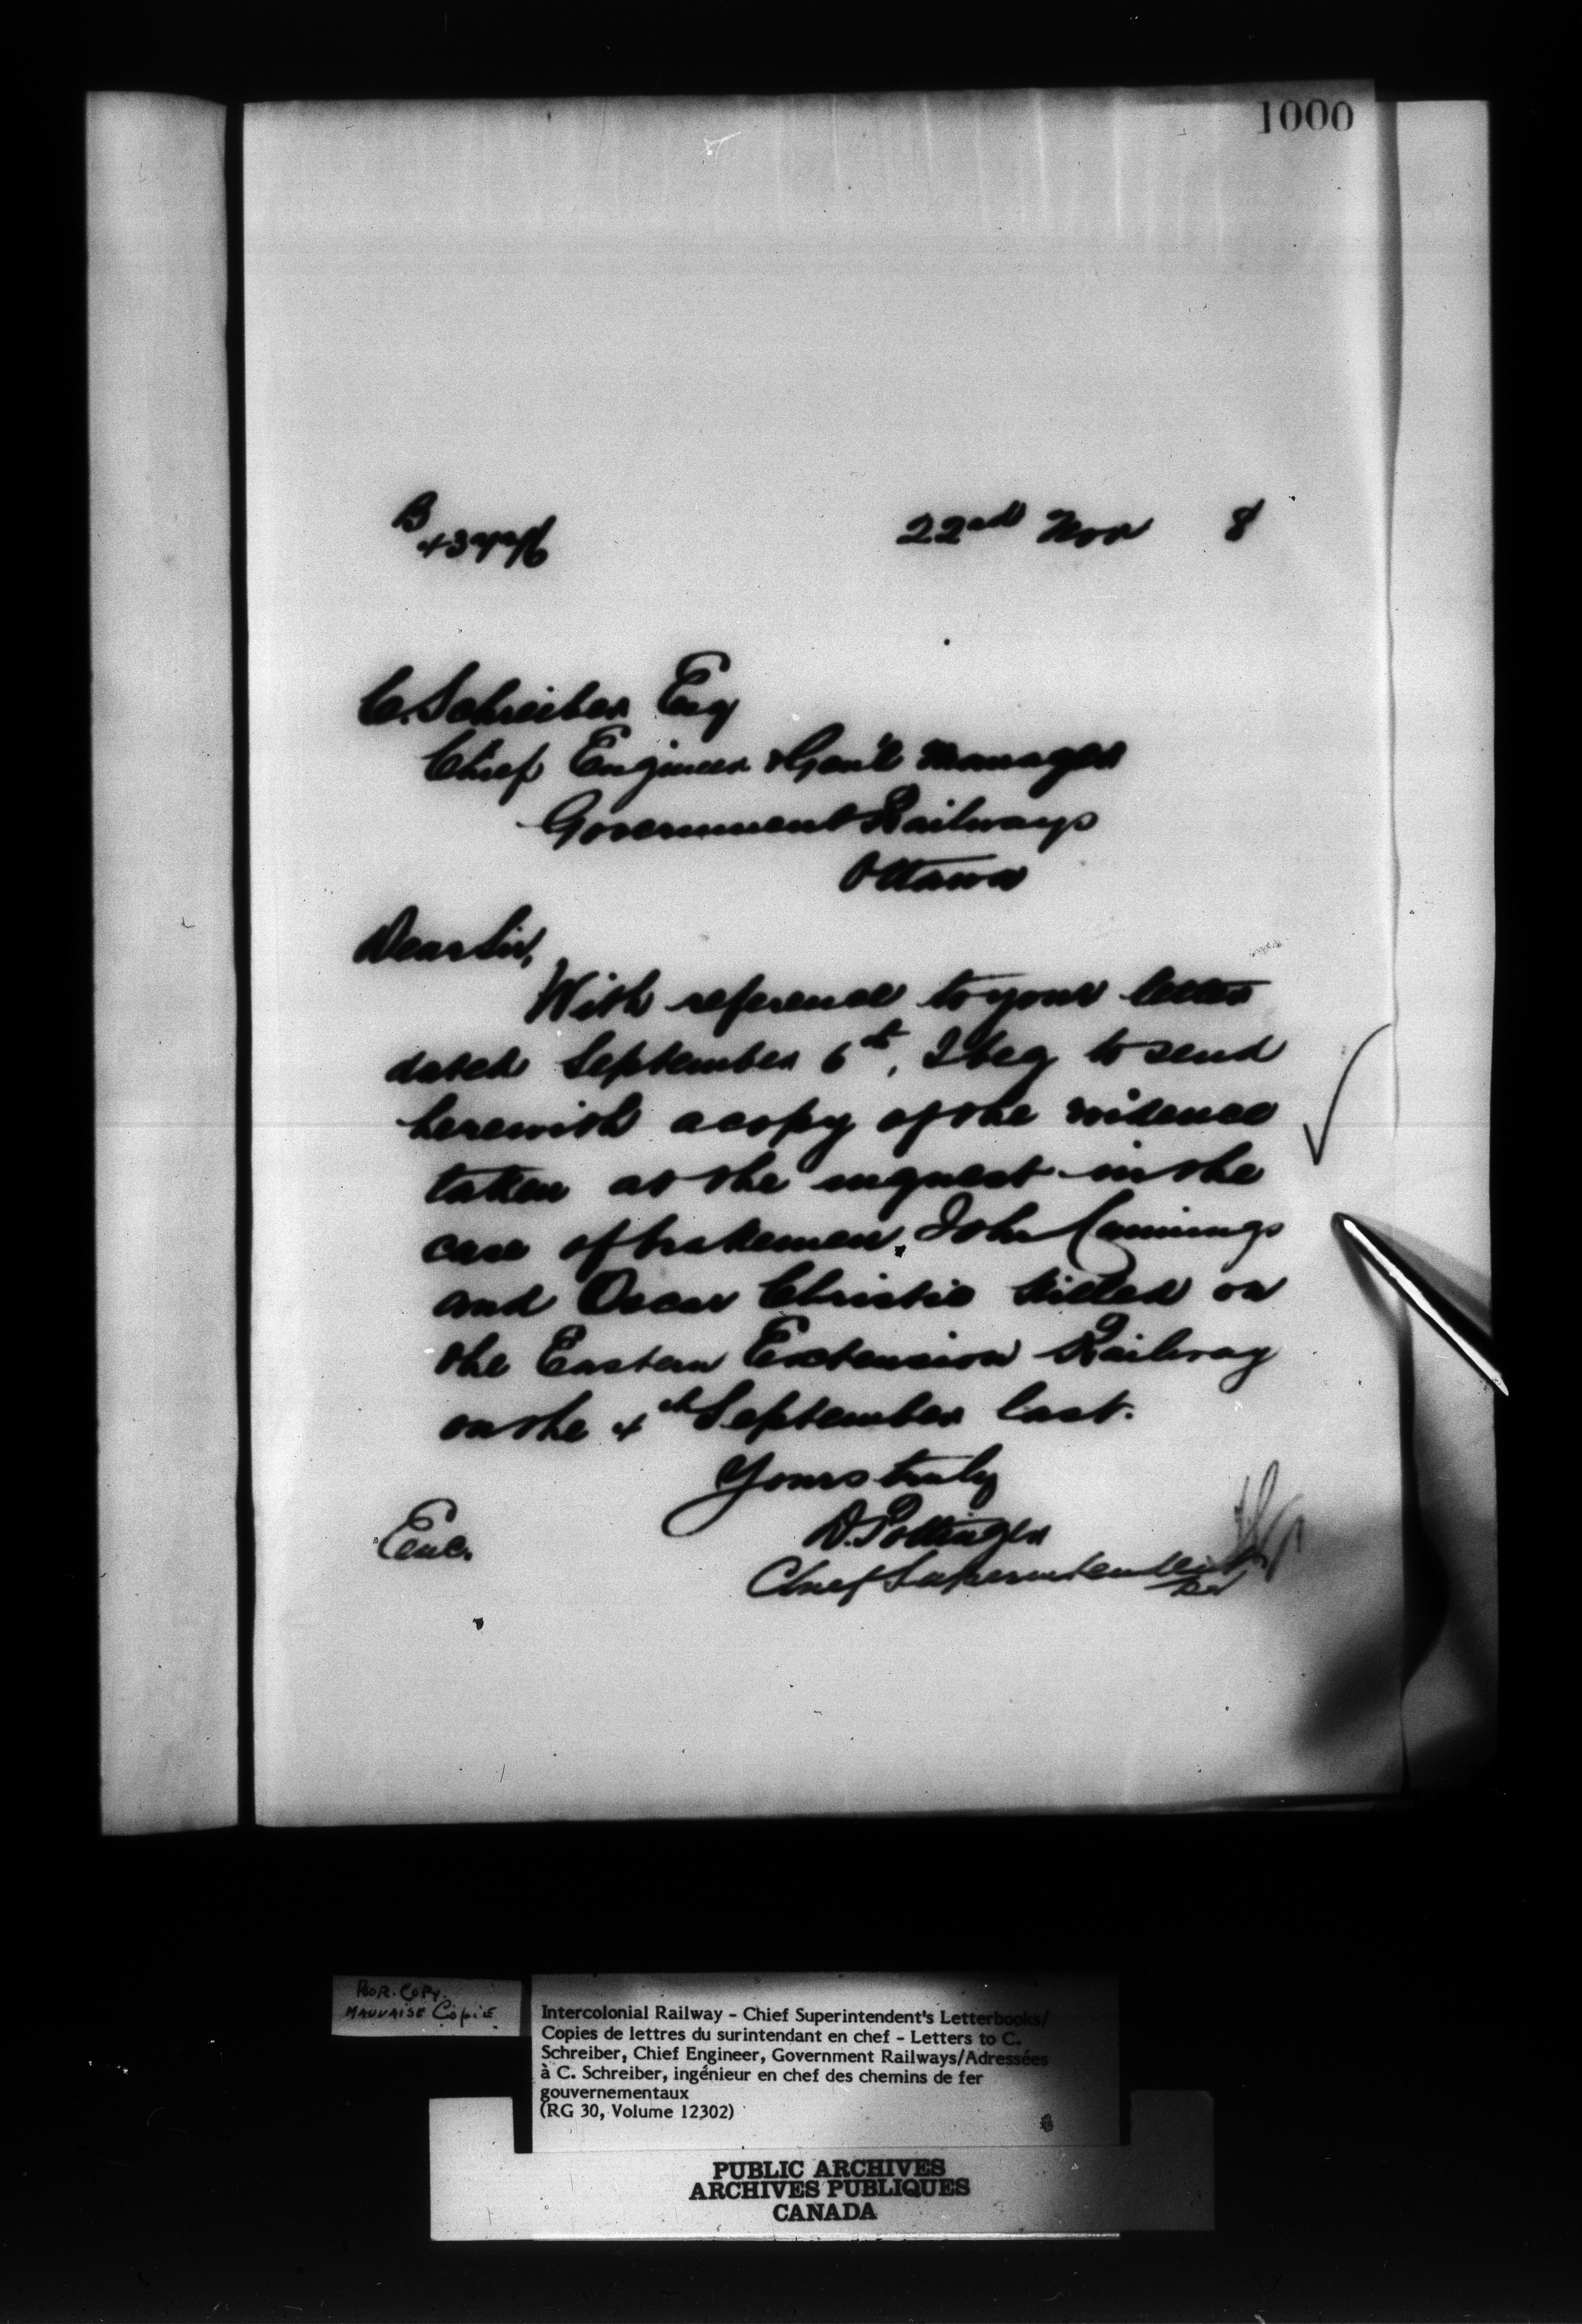 1000
22nd Nov 8
C. Schreiber Esq
Chief Engineer & Gen'l Manager
Government Railways
Ottawa
Dear Sir,
With reference to your letter
dated September 6th, I beg to send
herewith a copy of the evidence
taken at the inquest in the
case of brakemen John Cannings
and Oscar Christie killed on
the Eastern Extension Railway
on the 4th September last.
Yours truly
D. Pottinger
Enc.
Chief Superintendent
Per
POOR COPY.
MAUVAISE COPIE
Intercolonial Railway - Chief Superintendent's Letterbooks/
Copies de lettres du surintendant en chef - Letters to C.
Schreiber, Chief Engineer, Government Railways/Adressées
à C. Schreiber, ingénieur en chef des chemins de fer
gouvernementaux
(RG 30, Volume 12302)
PUBLIC ARCHIVES
ARCHIVES PUBLIQUES
CANADA